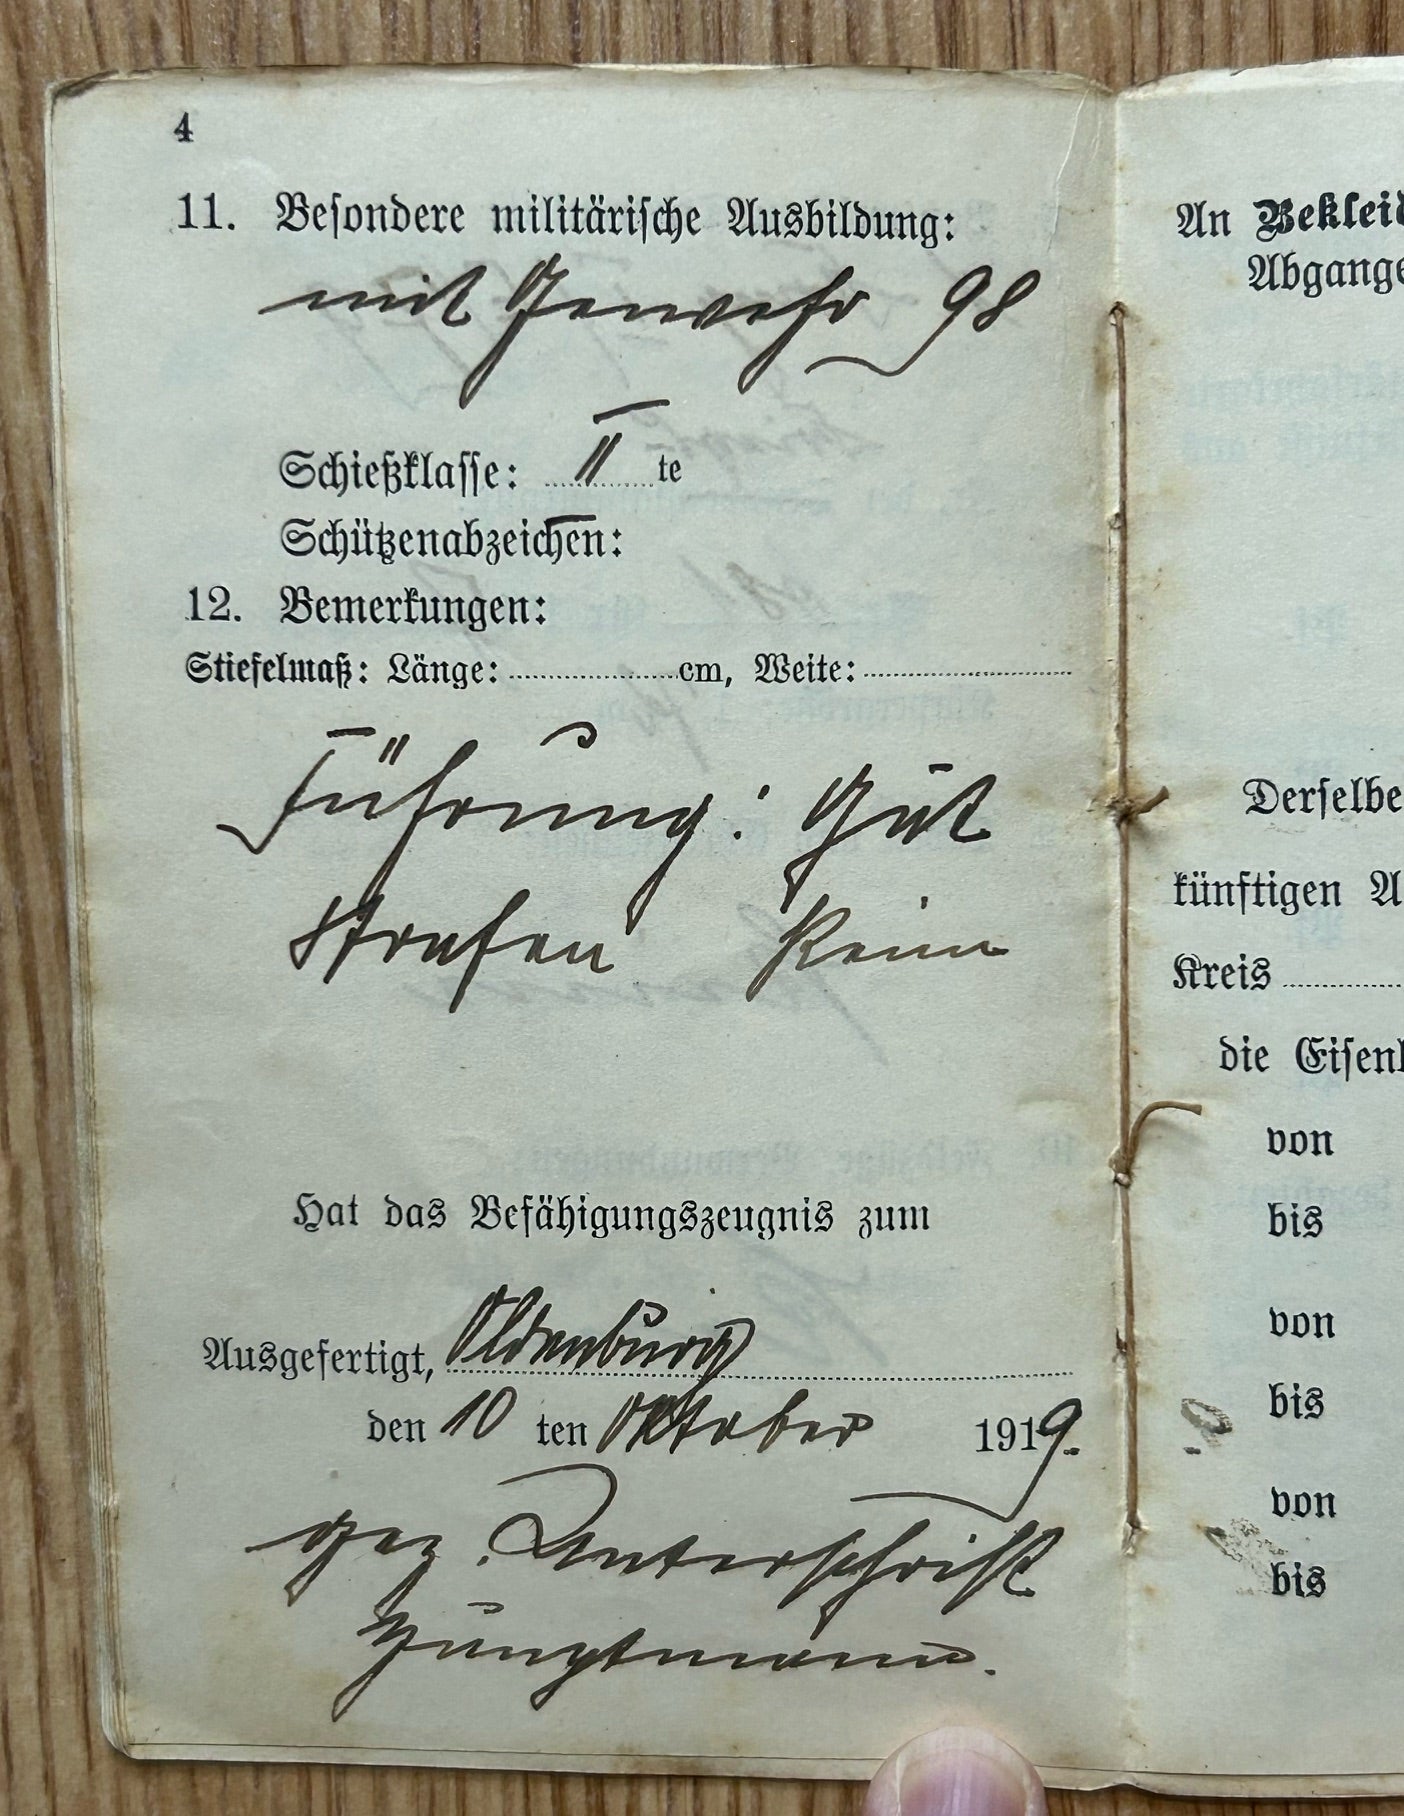 4
11. Besondere militärische Ausbildung:
mit Gewehr 98
Schießklasse: II te
Schützenabzeichen: —
12. Bemerkungen:
Stiefelmaß: Länge: cm, Weite:
Führung: Gut
Strafen Keine
Hat das Befähigungszeugnis zum
Ausgefertigt, Oldenburg
den 10 ten Oktober 1919.
gez. Unterschrift
Hauptmann.
An Bekleid
Abgange
Derselbe
künftigen A
Kreis
die Eisenb
von
bis
von
bis
von
bis